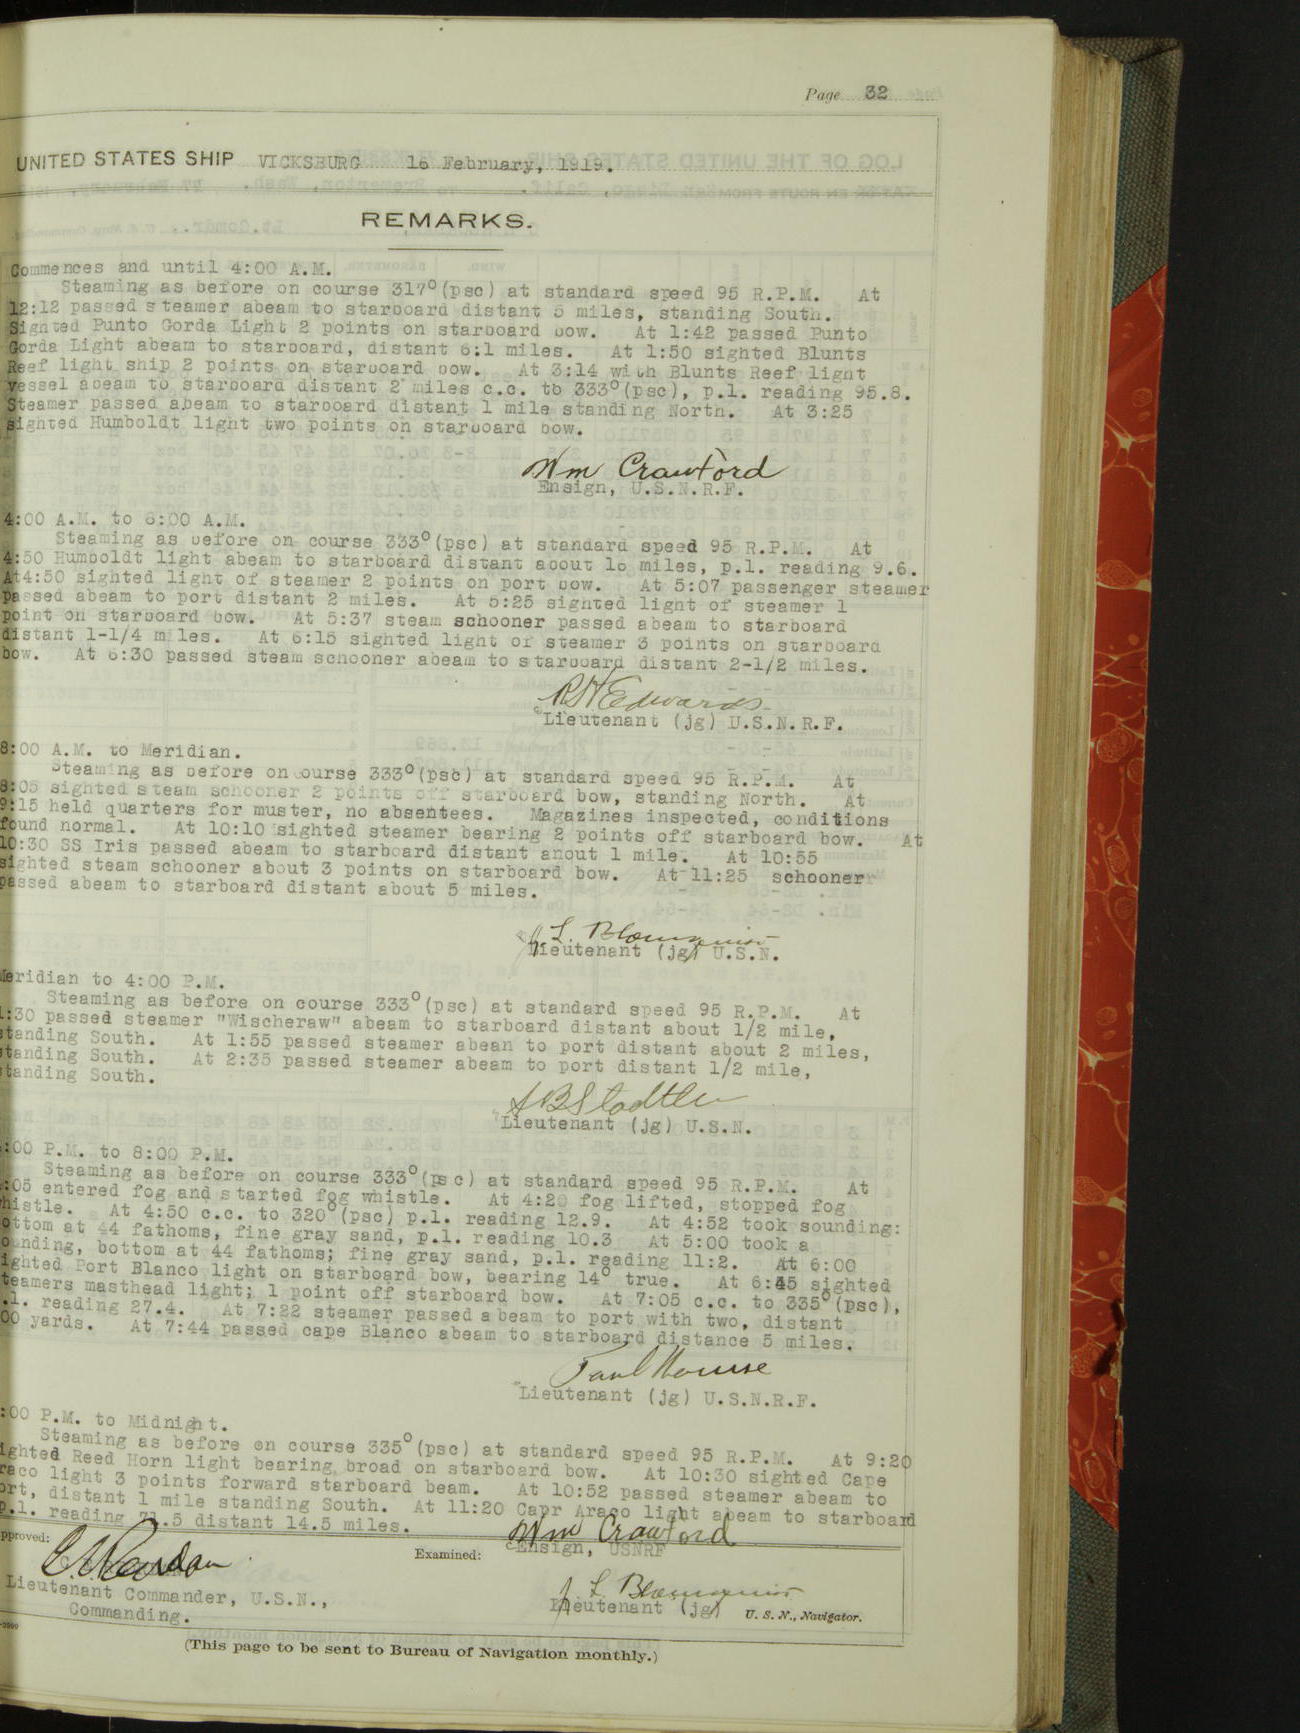 Page 32
UNITED STATES SHIP VICKSBURG 16 February, 1919.
REMARKS.
Commences and until 4:00 A.M.
Steaming as before on course 317°(psc) at standard speed 95 R.P.M. At
12:12 passed steamer abeam to starboard distant 5 miles, standing South.
Sighted Punto Gorda Light 2 points on starboard bow. At 1:42 passed Punto
Gorda Light abeam to starboard, distant 6:1 miles. At 1:50 sighted Blunts
Reef light ship 2 points on starboard bow. At 3:14 with Blunts Reef light
vessel abeam to starboard distant 2 miles c.c. to 333°(psc), p.l. reading 95.8.
Steamer passed abeam to starboard distant 1 mile standing North. At 3:25
sighted Humboldt light two points on starboard bow.
Wm Crawford
Ensign, U.S.N.R.F.
4:00 A.M. to 8:00 A.M.
Steaming as before on course 333°(psc) at standard speed 95 R.P.M. At
4:50 Humboldt light abeam to starboard distant about 16 miles, p.l. reading 9.6.
At4:50 sighted light of steamer 2 points on port bow. At 5:07 passenger steamer
passed abeam to port distant 2 miles. At 5:25 sighted light of steamer 1
point on starboard bow. At 5:37 steam schooner passed abeam to starboard
distant 1-1/4 miles. At 6:15 sighted light of steamer 3 points on starboard
bow. At 6:30 passed steam schooner abeam to starboard distant 2-1/2 miles.
R H Edwards
Lieutenant (jg) U.S.N.R.F.
8:00 A.M. to Meridian.
Steaming as before on course 333°(psc) at standard speed 95 R.P.M. At
8:05 sighted steam schooner 2 points off starboard bow, standing North. At
9:15 held quarters for muster, no absentees. Magazines inspected, conditions
found normal. At 10:10 sighted steamer bearing 2 points off starboard bow. At
10:30 SS Iris passed abeam to starboard distant anout 1 mile. At 10:55
sighted steam schooner about 3 points on starboard bow. At 11:25 schooner
passed abeam to starboard distant about 5 miles.
J. L. Blomquist
Lieutenant (jg) U.S.N.
Meridian to 4:00 P.M.
Steaming as before on course 333°(psc) at standard speed 95 R.P.M. At
1:30 passed steamer "Wischeraw" abeam to starboard distant about 1/2 mile,
standing South. At 1:55 passed steamer abean to port distant about 2 miles,
standing South. At 2:35 passed steamer abeam to port distant 1/2 mile,
standing South.
Lieutenant (jg) U.S.N.
:00 P.M. to 8:00 P.M.
Steaming as before on course 333°(psc) at standard speed 95 R.P.M. At
:05 entered fog and started fog whistle. At 4:20 fog lifted, stopped fog
histle. At 4:50 c.c. to 320°(psc) p.l. reading 12.9. At 4:52 took sounding:
ottom at 44 fathoms, fine gray sand, p.l. reading 10.3 At 5:00 took a
ounding, bottom at 44 fathoms; fine gray sand, p.l. reading 11:2. At 6:00
ighted Port Blanco light on starboard bow, bearing 14° true. At 6:45 sighted
teamers masthead light; 1 point off starboard bow. At 7:05 c.c. to 335°(psc),
.l. reading 27.4. At 7:22 steamer passed abeam to port with two, distant
00 yards. At 7:44 passed cape Blanco abeam to starboard distance 5 miles.
Paul Howse
Lieutenant (jg) U.S.N.R.F.
:00 P.M. to Midnight.
Steaming as before on course 335°(psc) at standard speed 95 R.P.M. At 9:20
ighted Reed Horn light bearing broad on starboard bow. At 10:30 sighted Cape
raco light 3 points forward starboard beam. At 10:52 passed steamer abeam to
ort, distant 1 mile standing South. At 11:20 Capr Arago light abeam to starboard
p.l. reading .5 distant 14.5 miles.
Wm Crawford
Ensign, USNRF
pproved:
Examined:
Lieutenant Commander, U.S.N.,
Commanding.
J. L. Blomquist
Lieutenant (jg) U. S. N., Navigator.
(This page to be sent to Bureau of Navigation monthly.)